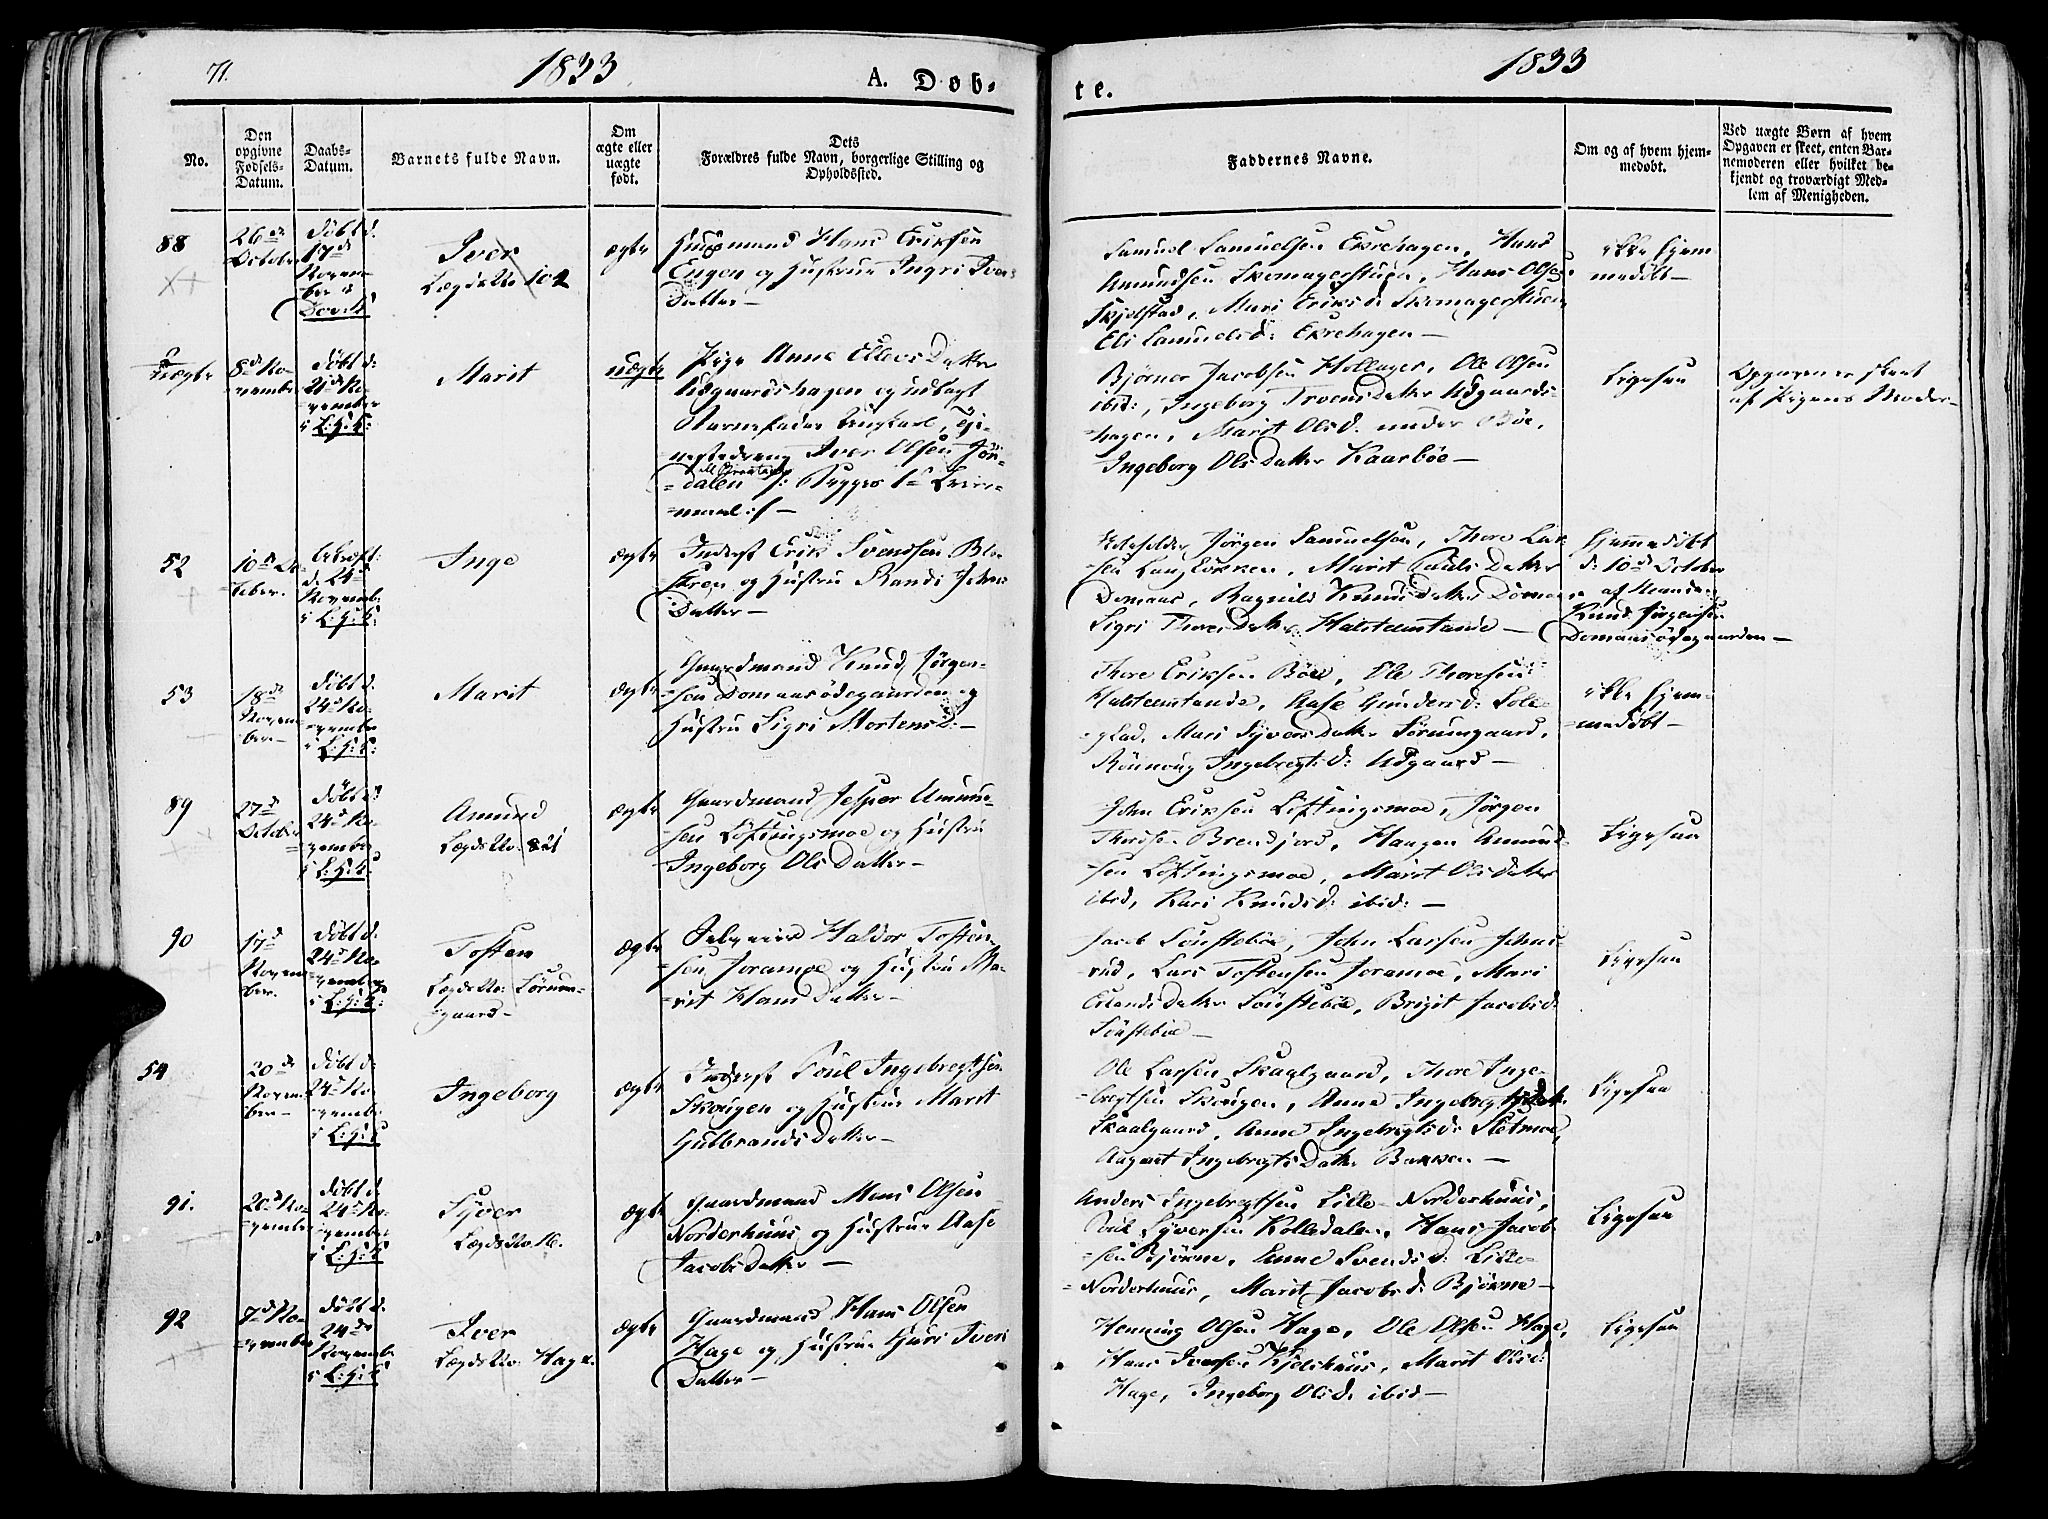 71.
1833
A. Døb-
te.
1833
No.
Den
opgivne
Fødsels-
Datum.
Daabs-
Datum.
Barnets fulde Navn.
Om
ægte eller
uægte
født.
Dets
Forældres fulde Navn, borgerlige Stilling og
Opholdssted.
Faddernes Navne.
Om og af hvem hjem-
medøbt.
Ved uægte Børn af hvem
Opgaven er skeet, enten Bar-
nemoderen eller hvilket be-
kjendt og troværdigt Med-
lem af Menigheden.
88
26de
October
Døbt d.
17de
Novem-
ber i
Iver
Lægds No 102
ægte
Huusmand Hans Eriksen
Engen og Hustrue Ingri Ivers
Datter —
Samuel Samuelsen Ekrehagen, Hans
Amundsen Skomagerstuen, Hans Olsen
Skjelstad, Mari Eriksd: Skomagerstuen
Eli Samuelsd: Ekrehagen —
ikke hjem
medøbt —
Uægte
8de No-
vember
Døbt d:
21de No-
vember
i L: H: K:
Marit
uægte
Pige Anne Ellevs Datter
Udgaardshagen og udlagt
Barnefader Ungkarl, Tje-
nestedreng Iver Olsen Jør-
dalen /: Begges 1ste Leier-
maal :/ —
Bjørner Jacobsen Hollager, Ole Olsen
ibid:, Ingeborg Troens Datter Udgaards-
hagen, Marit Olsd: under Bøe,
Ingeborg Ols Datter Kaarbøe —
Ligesaa
Opgaven er skeet
af Pigens Moder —
52
10de Oc-
tober.
d. 24de
Novemb:
i L: H: K:
Inge
ægte
Inderst Erik Svendsen Ble-
kren og Hustru Randi Johns
Datter —
Jørgen Samuelsen, Thore Lar-
sen Langløkken, Marit Pauls Datter
Domaas, Ragnild Knuds Datter Domaas
Sigri Thores Datter Halsteenstande —
Hjemmedøbt
d: 10de October
af Mand
Knud Jørgensen
Domaasødegaarden —
53
18de
Novem-
ber —
Døbt d.
24de No-
vember
i L: H: K:
Marit
ægte
Gaardmand Knud Jørgen-
sen Domaasødegaarden og
Hustru Sigri Mortensd: —
Thore Eriksen Bøe, Ole Thoresen
Halsteenstande, Aase Gundersd: Sole-
glad, Mari Syvers Datter Sørumgaard,
Rønnoug Ingebregts D: Udgaard —
ikke hjem-
medøbt —
89
27de
October
Døbt d:
24de No-
vember
i L: H: K:
Amund
Lægds No: 821
ægte
Gaardmand Jesper Amund-
sen Løftingsmoe og Hustru
Ingeborg Ols Datter —
John Eriksen Løftingsmoe, Jørgen
Thordsen Brendjord, Haagen Amund-
sen Løftingsmoe, Marit Ols Datter
ibid, Kari Knudsd: ibid: —
Ligesaa
90
17de
Novem
ber.
Døbt d:
24de No-
vember
i L: H: K:
Tosten
Lægds No: Sørum-
gaard —
ægte
Selveier Haldor Tosten-
sen Joramoe og Hustrue Ma-
rit Hans Datter —
Jacob Sønstebøe, John Larsen Johns-
rud, Lars Tostensen Joramoe, Mari
Erlands Datter Sønstebøe, Brigit Jacobsd:
Sønstebøe —
Ligesaa
54
20de
Novem-
ber —
Døbt d:
24de No-
vember
i L: H: K:
Ingeborg
ægte
Inderst Poul Ingebregtsen
Skougen og Hustrue Marit
Gulbrands Datter —
Ole Larsen Skaalgaard, Thore Inge-
bregtsen Skougen, Anna Ingebregtsdatt:
Skaalgaard, Anne Ingebregtsd: Sletmoe,
Ingebregts Datter Bakken —
Ligesaa
91.
20de No-
vember
Døbt d
24de No-
vember
i L: H: K:
Syver
Lægds No. 16.
ægte
Gaardmand Mons Olsen
Norderhuus og Hustrue Aase
Jacobs Datter —
Anders Ingebregtsen Lille-Norderhuus,
Erik Syversen Kolledalen, Hans Jacob-
sen Bjørne, Anne Svendsd: Lille-
Norderhuus, Marit Jacobsd: Bjørne —
Ligesaa
92
7de No-
vember
Døbt d:
24de
Novemb:
i L: H: K:
Iver
Lægds No: Hage.
ægte
Gaardmand Hans Olsen
Hage og Hustrue Guri Ivers
Datter —
Henning Olsen Hage, Ole Olsen Hage,
Hans Iversen Kjelshuus, Marit Olsd:
Hage, Ingeborg Olsd: ibid —
Ligesaa